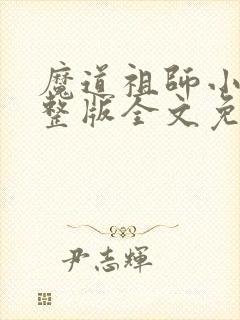 魔道祖師小
整版全文免
尹志輝